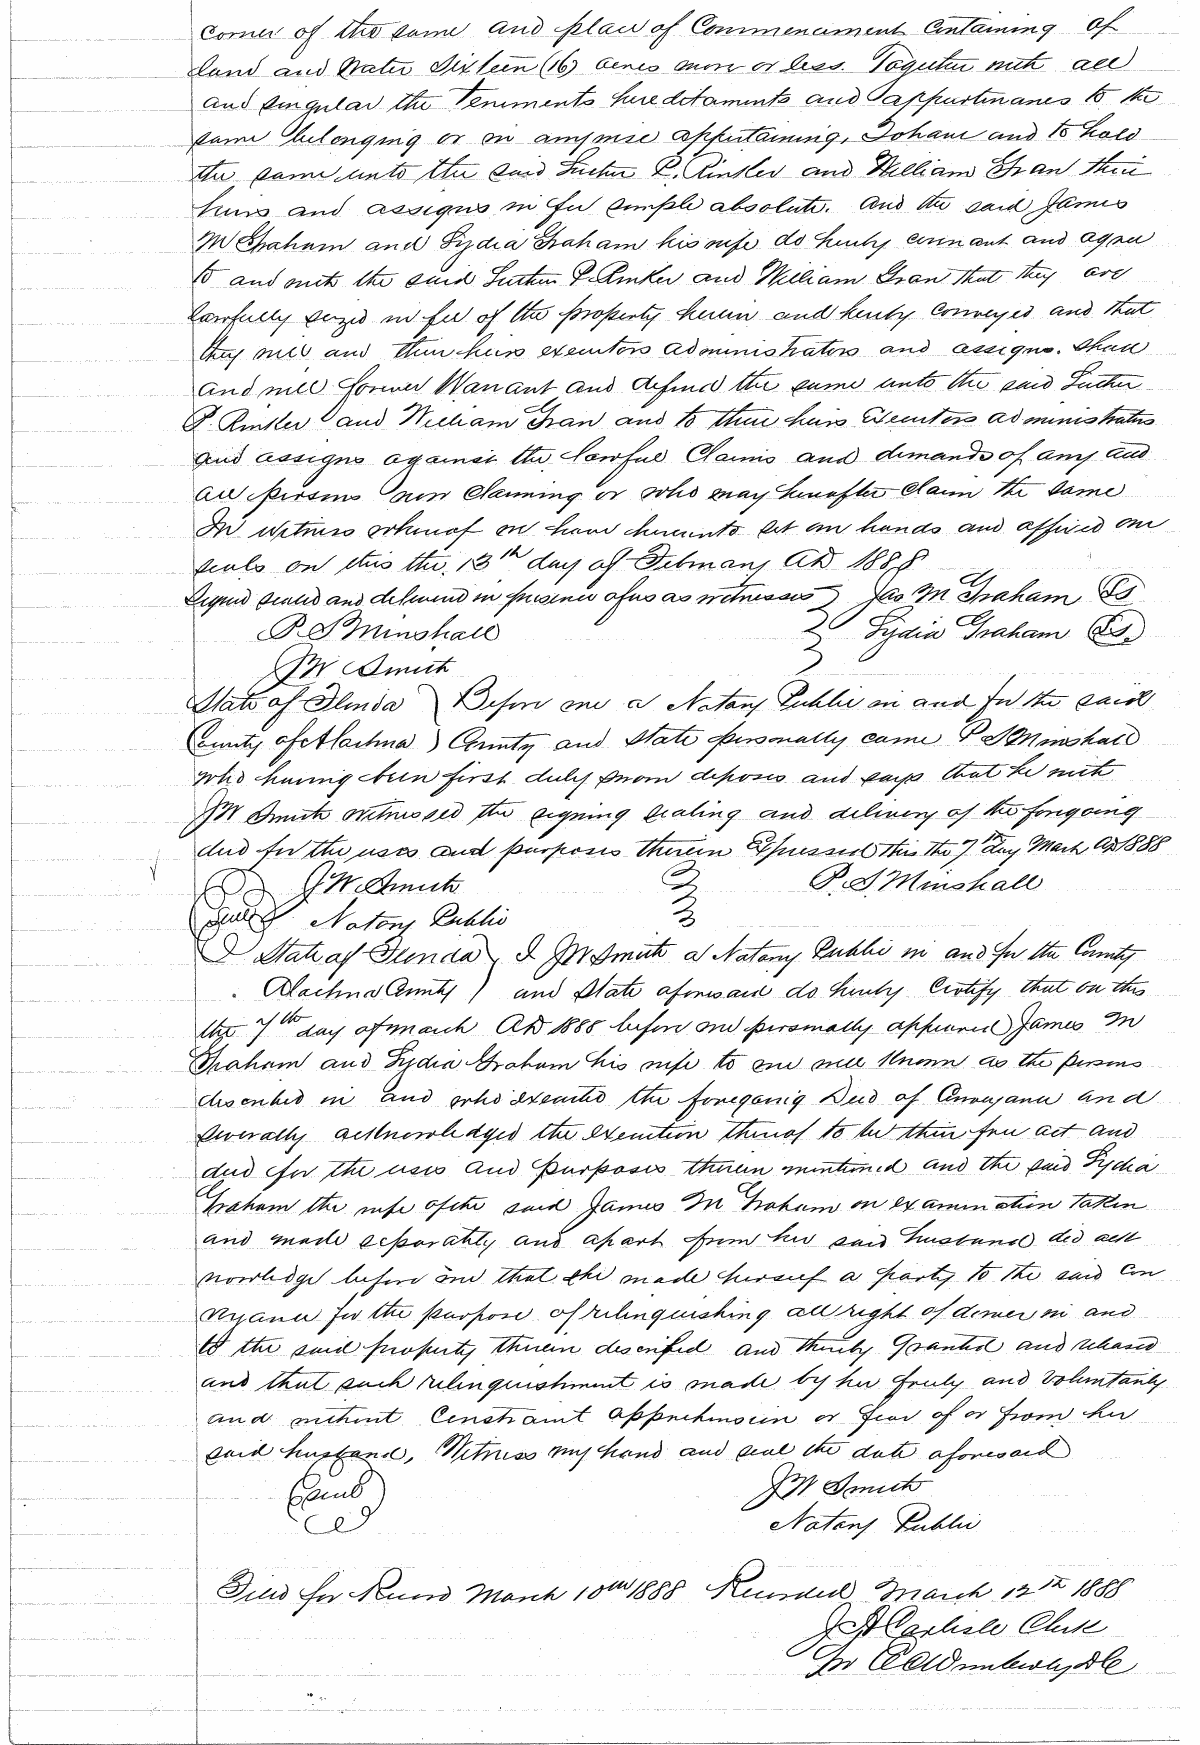 corner of the same and place of Commencement Containing of
land and Water Sixteen (16) acres more or less. Together with all
and singular the Teniments hereditaments and appurtinances to the
same belonging or in anywise appertaining, To have and to hold
the same unto the said Luther P. Rinker and William Gran their
heirs and assigns in fee simple absolute. And the said James
M Graham and Lydia Graham his wife do hereby covenant and agree
to and with the said Luther P. Rinker and William Gran that they are
lawfully seized in fee of the property herein and hereby conveyed and that
they will and their heirs executors administrators and assigns. Shall
and will forever Warrant and defend the same unto the said Luther
P. Rinker and William Gran and to their heirs Executors administrators
and assigns against the lawful Claims and demands of any and
all persons now claiming or who may hereafter claim the same
In witness whereof we have hereunto set our hands and affixed our
seals on this the 13th day of February AD 1888
Signed sealed and delivered in presence of us as witnesses } Jas M Graham Ls
P. S Minshall } Lydia Graham Ls.
J W Smith
State of Florida } Before me a Notary Public in and for the said
County of Alachua ) County and State personally came P S Minshall
who having been first duly sworn deposes and says that he with
J W Smith witnessed the signing sealing and delivery of the foregoing
deed for the uses and purposes therein Expressed this the 7th day March AD 1888
J. W. Smith P. S Minshall
Seal Notary Public
State of Florida } I J W Smith a Notary Public in and for the County
Alachua County ) and State aforesaid do hereby Certify that on this
the 7th day of March AD 1888 before me personally appeared James M
Graham and Lydia Graham his wife to me well Known as the persons
described in and who executed the foregoing Deed of Conveyance and
severally acknowledged the execution thereof to be their free act and
deed for the uses and purposes therein mentioned and the said Lydia
Graham the wife of the said James M Graham on examination taken
and made separately and apart from her said husband did ack
nowledge before me that she made herself a party to the said Con
veyance for the purpose of relinquishing all right of dower in and
to the said property therein described and thereby Granted and released
and that such relinquishment is made by her freely and voluntarily
and without Constraint apprehension or fear of or from her
said husband, Witness my hand and seal the date aforesaid
Seal J W Smith
Notary Public
Filed for Record March 10th 1888 Recorded March 12th 1888
J A Carlisle Clerk